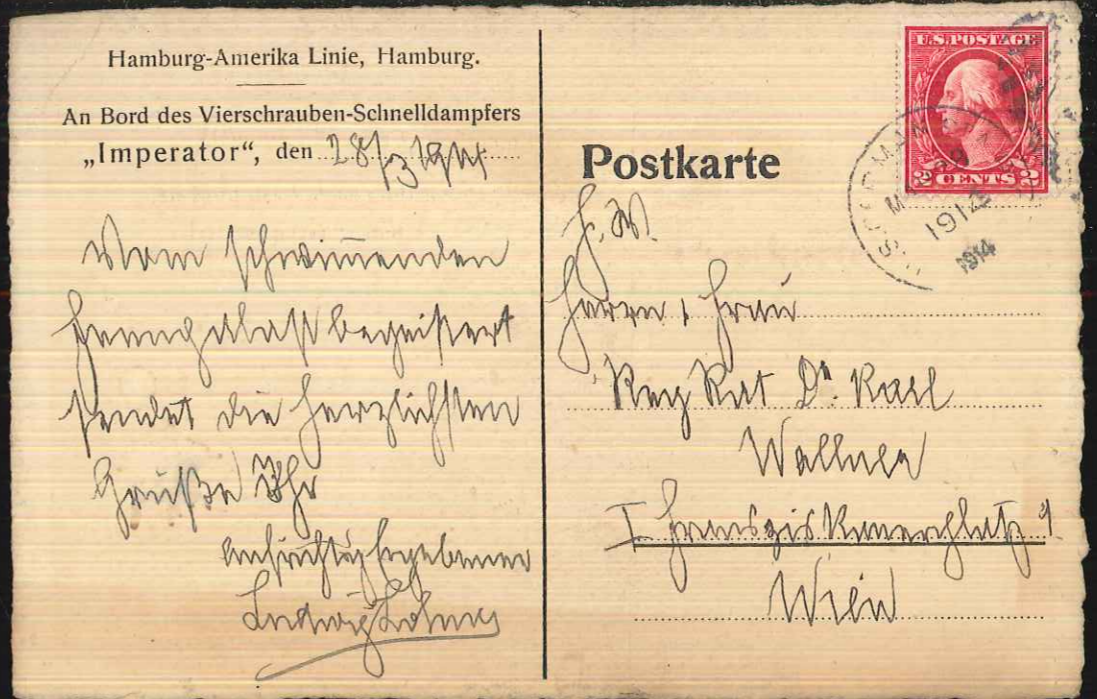 Hamburg-Amerika Linie, Hamburg.
An Bord des Vierschrauben-Schnelldampfers
„Imperator“, den 28/3 1914
Vom schwimmenden
begeistert
sendet die herzlichsten
Grüße Ihr
aufrichtig Ergebener
Ludwig
Postkarte
U.S. POSTAGE
2 CENTS 2
1914
1914
H. W.
Herrn, Frau
Reg Rat Dr. Karl
Wallner
I Franziskanerplatz 1
Wien